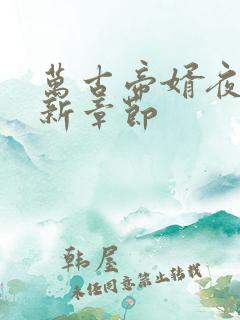 萬古帝婿夜
新章節
韩屋
未经同意禁止转载